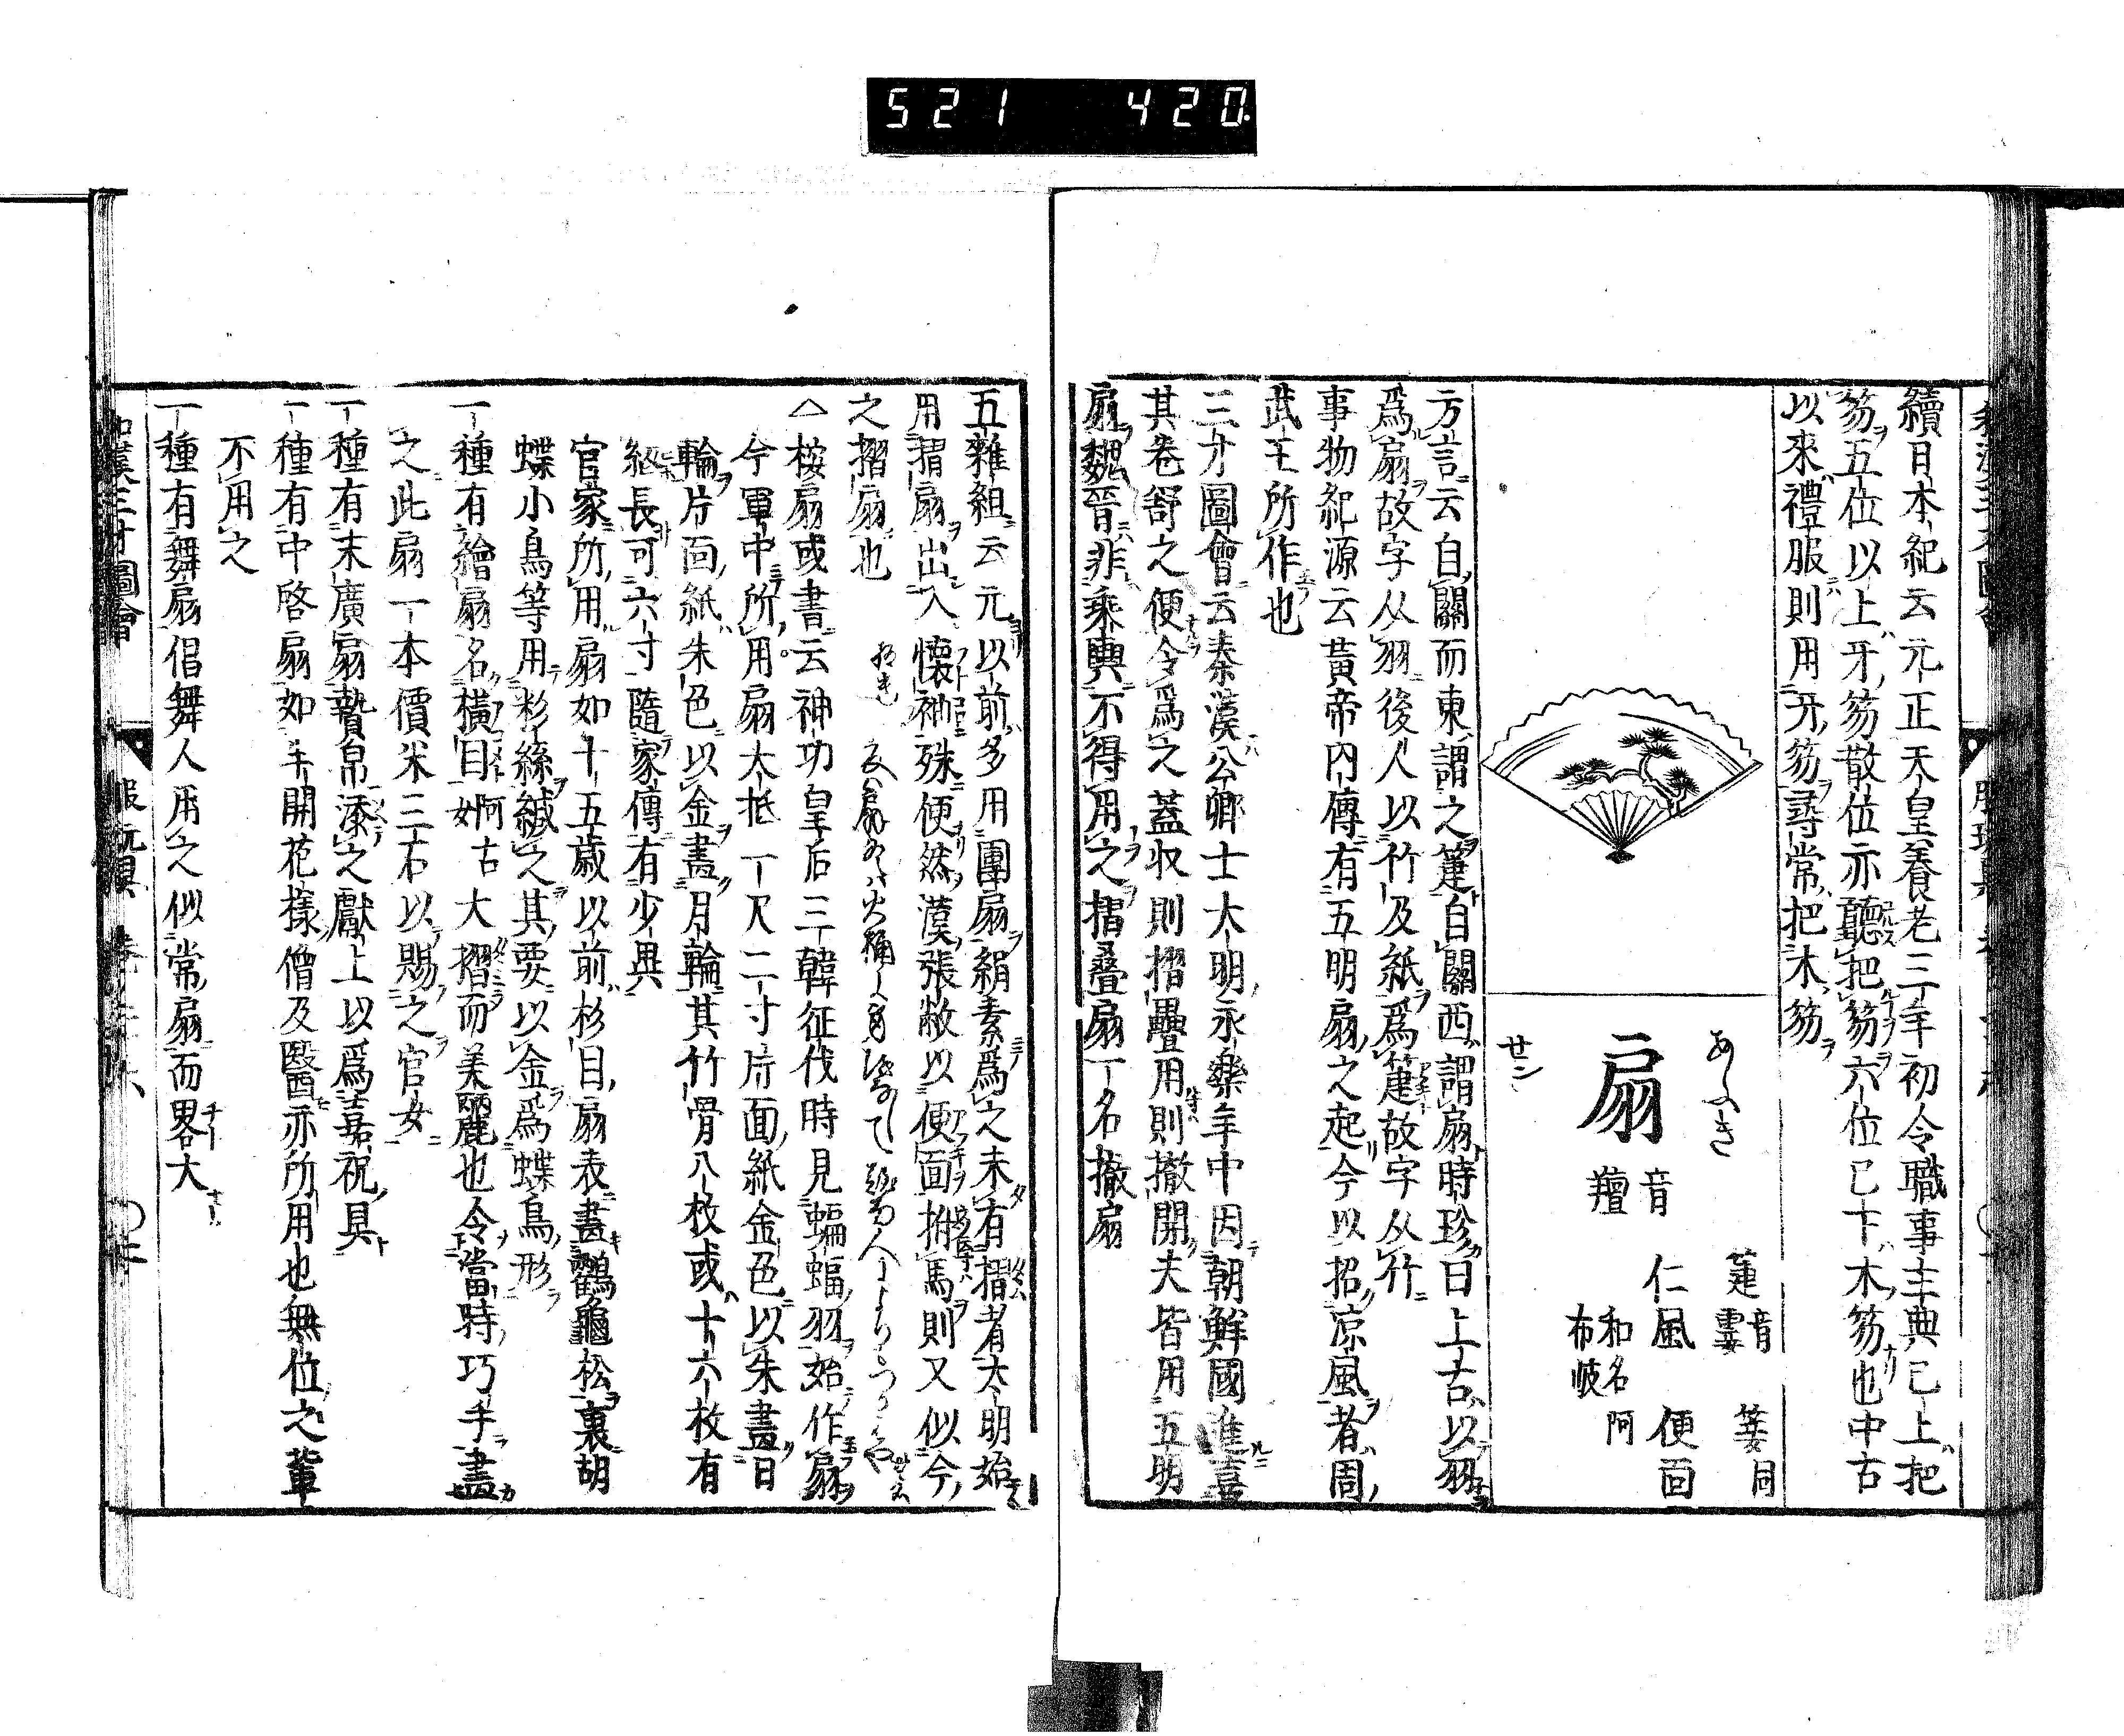 521 420
續日本紀云元正天皇養老三年初令職事主典已上把
笏五位以上牙笏散位亦聽把笏六位已下木笏也中古
以來禮服則用牙笏尋常把木笏
あふき
扇
音
羶
せン
箑音霎 箑同
仁風 便面
和名 阿
布岐
方言云自關而東謂之箑自關西謂扇時珍曰上古以羽
爲扇故字从羽後人以竹及紙爲箑故字从竹
事物紀源云黃帝內傳有五明扇之起今以招凉風者周
武王所作也
三才圖會云秦漢公卿士大明永樂年中因朝鮮國進
其卷舒之便令爲之蓋収則摺疊用則撒開夫皆用五明
扇魏晉非乘輿不得用之摺疊扇一名撒扇
五雜組云元以前多用團扇絹素爲之未有摺者大明始
用摺扇出入懷袖殊便然漢張敞以便面拊馬則又似今
之摺扇也
△桉扇或書云神功皇后三韓征伐時見蝙蝠羽始作扇
今軍中所用扇大抵一尺二寸片面紙金色以朱畫日
輪片面紙朱色以金畫月輪其竹骨八枚或十六枚有
總長可六寸隨家傳有少異
官家所用扇如十五歲以前杉目扇表畫鶴龜松裏胡
蝶小鳥等用彩絲緘之其要以金爲蝶鳥形
一種有繪扇名橫目阿古女大摺而美麗也令當時巧手畫
之此扇一本價米三石以賜之官女
一種有末廣扇贄帛漆之獻上以爲嘉祝具
一種有中啓扇如半開花樣僧及醫亦所用也無位之輩
不用之
一種有舞扇倡舞人用之似常扇而畧大
和漢三才圖會 服玩具